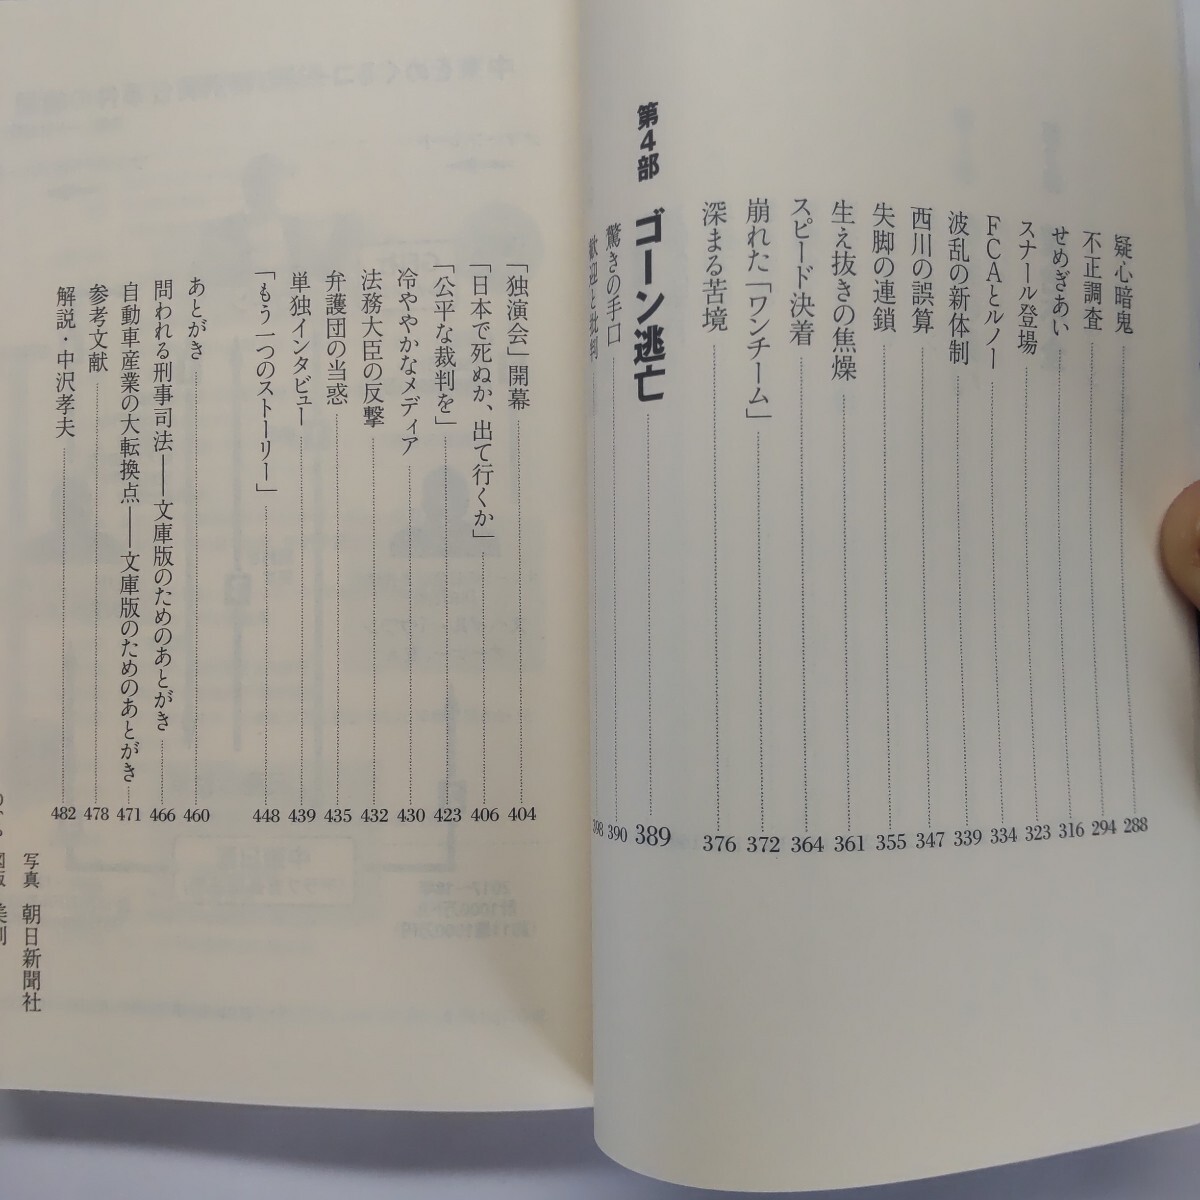 疑心暗鬼 288
不正調査 294
せめぎあい 316
スナール登場 323
FCAとルノー 334
波乱の新体制 339
西川の誤算 347
失脚の連鎖 355
生え抜きの焦燥 361
スピード決着 364
崩れた「ワンチーム」 372
深まる苦境 376
第4部 ゴーン逃亡 389
驚きの手口 390
歓迎と批判 398
「独演会」開幕 404
「日本で死ぬか、出て行くか」 406
「公平な裁判を」 423
冷ややかなメディア 430
法務大臣の反撃 432
弁護団の当惑 435
単独インタビュー 439
「もう一つのストーリー」 448
あとがき 460
問われる刑事司法——文庫版のためのあとがき 466
自動車産業の大転換点——文庫版のためのあとがき 471
参考文献 478
解説・中沢孝夫 482
写真 朝日新聞社